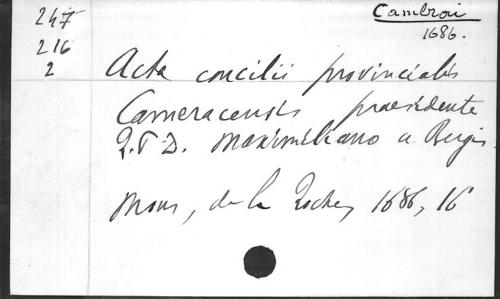 247
216
2
Cambrai
1686.
Acta concilii provincialis
Cameracensis praesidente
D. Maximiliano a Bergis.
Mons, de la Roche, 1686, 16°